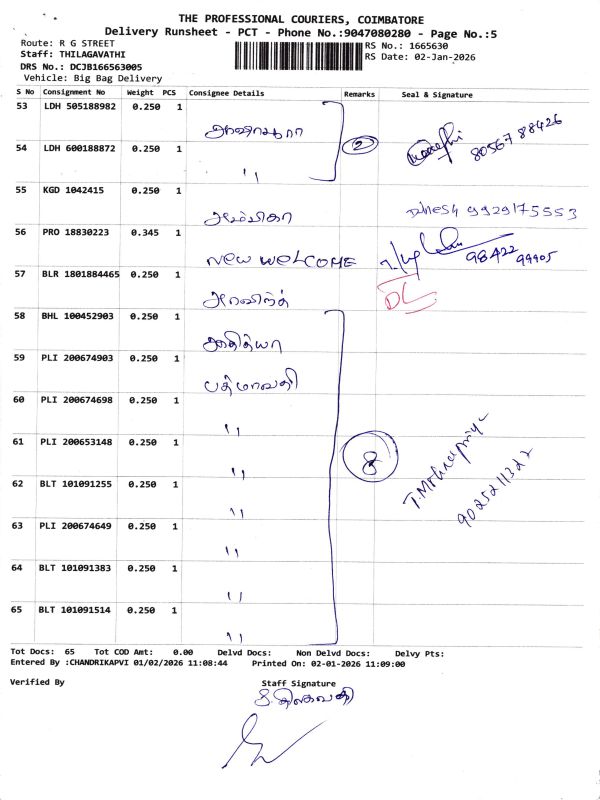 THE PROFESSIONAL COURIERS, COIMBATORE
Delivery Runsheet - PCT - Phone No.:9047080280 - Page No.:5
Route: R G STREET
Staff: THILAGAVATHI
DRS No.: DCJB166563005
Vehicle: Big Bag Delivery
RS No.: 1665630
RS Date: 02-Jan-2026
S No Consignment No Weight PCS Consignee Details Remarks Seal & Signature
53 LDH 505188982 0.250 1
54 LDH 600188872 0.250 1 2 80567 88426
"
55 KGD 1042415 0.250 1
அம்பிகா Dinesh 9929175553
56 PRO 18830223 0.345 1
NEW WELCOME 98422 99905
57 BLR 1801884465 0.250 1 DL
அரவிந்த்
58 BHL 100452903 0.250 1
ஆதித்யா
59 PLI 200674903 0.250 1
பத்மாவதி
60 PLI 200674698 0.250 1
"
61 PLI 200653148 0.250 1 8 T.Mohanapriya
" 9025211322
62 BLT 101091255 0.250 1
"
63 PLI 200674649 0.250 1
"
64 BLT 101091383 0.250 1
"
65 BLT 101091514 0.250 1
"
Tot Docs: 65 Tot COD Amt: 0.00 Delvd Docs: Non Delvd Docs: Delvy Pts:
Entered By :CHANDRIKAPVI 01/02/2026 11:08:44 Printed On: 02-01-2026 11:09:00
Verified By Staff Signature
S.திலகவதி